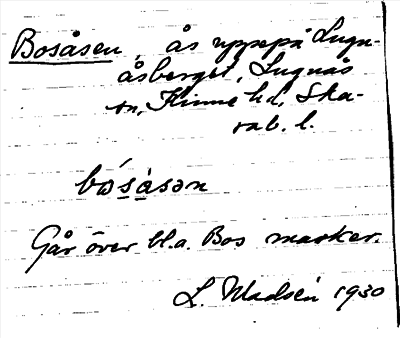 Bosåsen, ås uppepå Lugn-
åsberget, Lugnås
sn, Kinne hd, Ska-
rab. l.
bósàsən
Går över bl.a. Bos marker.
L. Madsén 1930